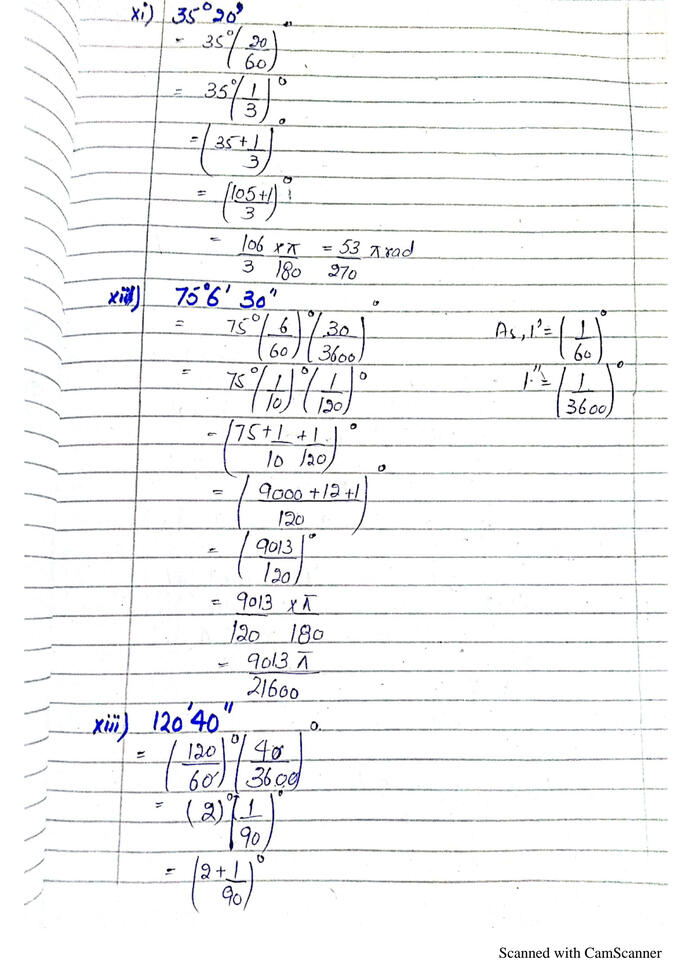 xi) 35°20'
= 35°(20/60)°
= 35°(1/3)°
= (35+1/3)°
= (105+1/3)°
= 106/3 × π/180 = 53/270 π rad
xii) 75°6' 30"
= 75°(6/60)°(30/3600)° As, 1' = (1/60)°
= 75°(1/10)°(1/120)° 1" = (1/3600)°
= (75+1/10+1/120)°
= (9000+12+1/120)°
= (9013/120)°
= 9013/120 × π/180
= 9013π/21600
xiii) 120'40"
= (120/60)°(40/3600)°
= (2)°(1/90)°
= (2+1/90)°
Scanned with CamScanner